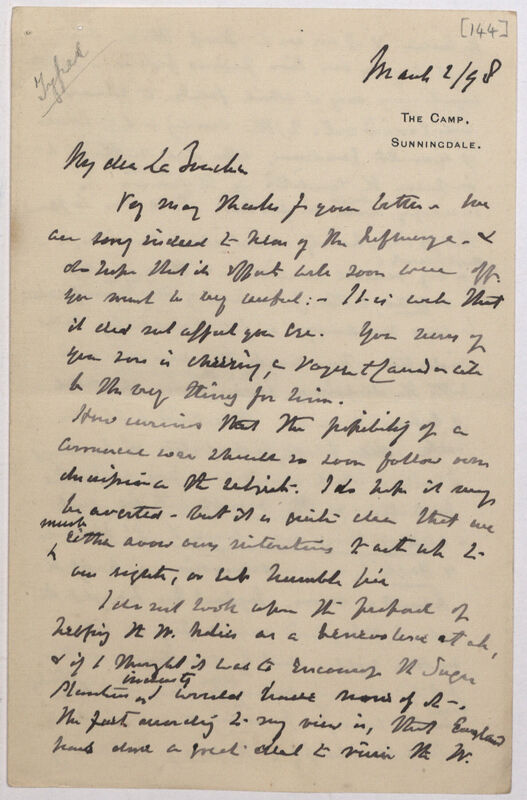 [144]
Typed
March 2/98
THE CAMP,
SUNNINGDALE.
My dear La Touche
Very many thanks for your letter. We
are sorry indeed to hear of the Influenza - &
do hope that its effects will soon wear off.
you must be very careful: - It is well that
it did not affect your Eye. Your news of
your son is cheering, a voyage & Canada will
be the very thing for him.
How curious that the possibility of a
commercial war should so soon follow our
discussion on the subject. I do hope it may
be averted - but it is quite clear that we
must
either avow our intentions to act up to
our rights, or eat humble pie
I do not look upon the proposal of
helping the W. Indies as a benevolence at all,
& if I thought it was to encourage the Sugar
industry
Planters I would have none of it -.
The fact according to my view is, that England
have done a great deal to ruin the W.